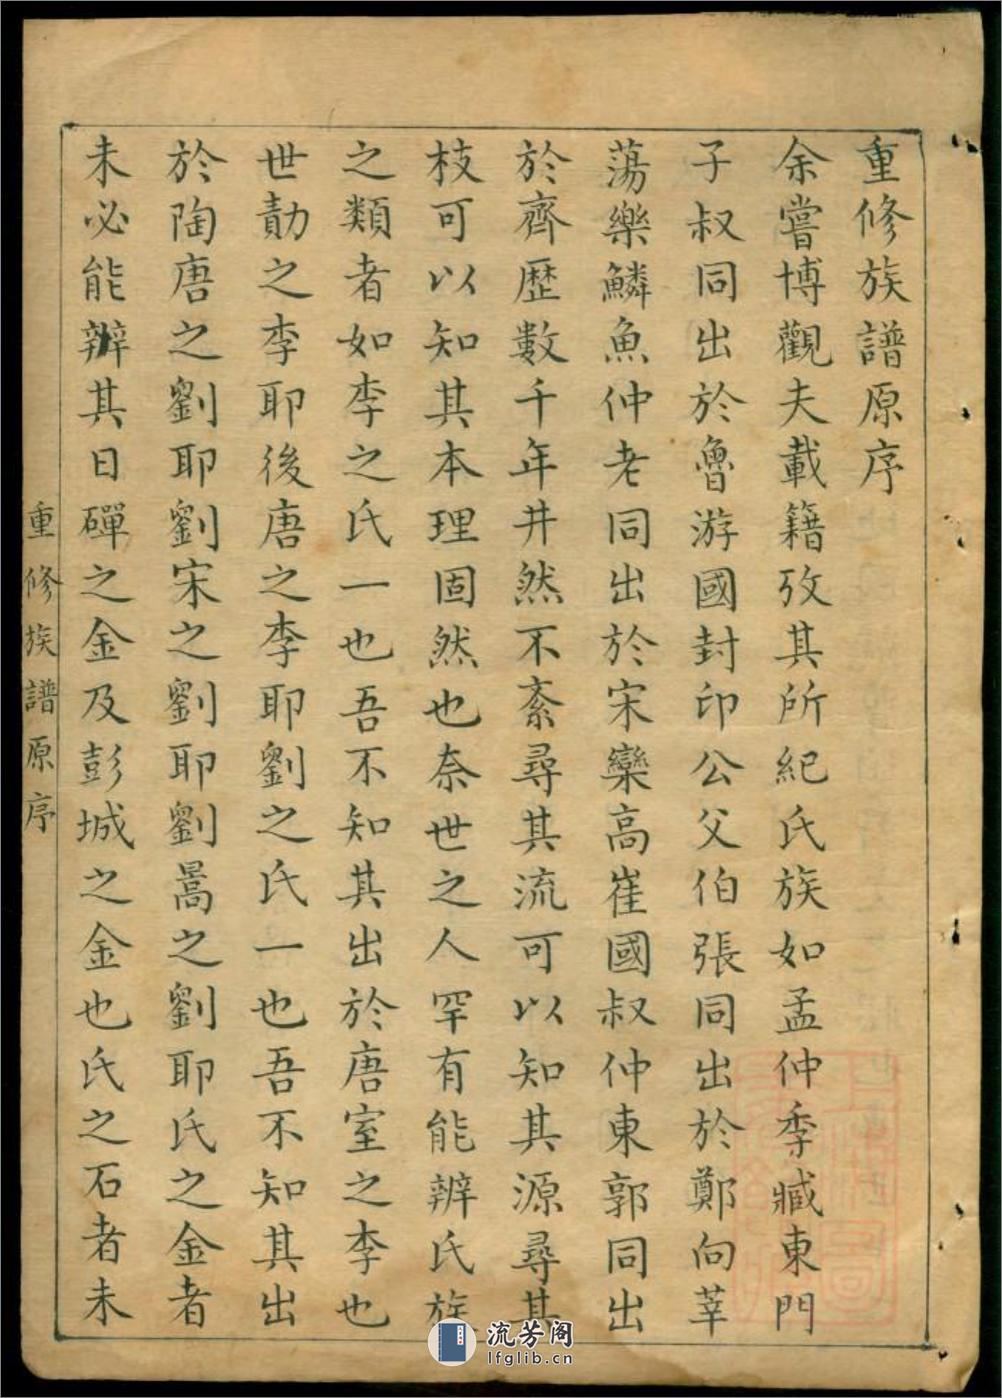 重修族譜原序
余嘗博觀夫載籍攷其所紀氏族如孟仲季臧東門
子叔同出於魯游國封印公父伯張同出於鄭向莘
蕩樂鱗魚仲老同出於宋欒高崔國叔仲東郭同出
於齊歷數千年井然不紊尋其流可以知其源尋其
枝可以知其本理固然也奈世之人罕有能辨氏族
之類者如李之氏一也吾不知其出於唐室之李也
世勣之李耶後唐之李耶劉之氏一也吾不知其出
於陶唐之劉耶劉宋之劉耶劉暠之劉耶氏之金者
未必能辨其日磾之金及彭城之金也氏之石者未
重修族譜原序
流芳阁
lfglib.cn